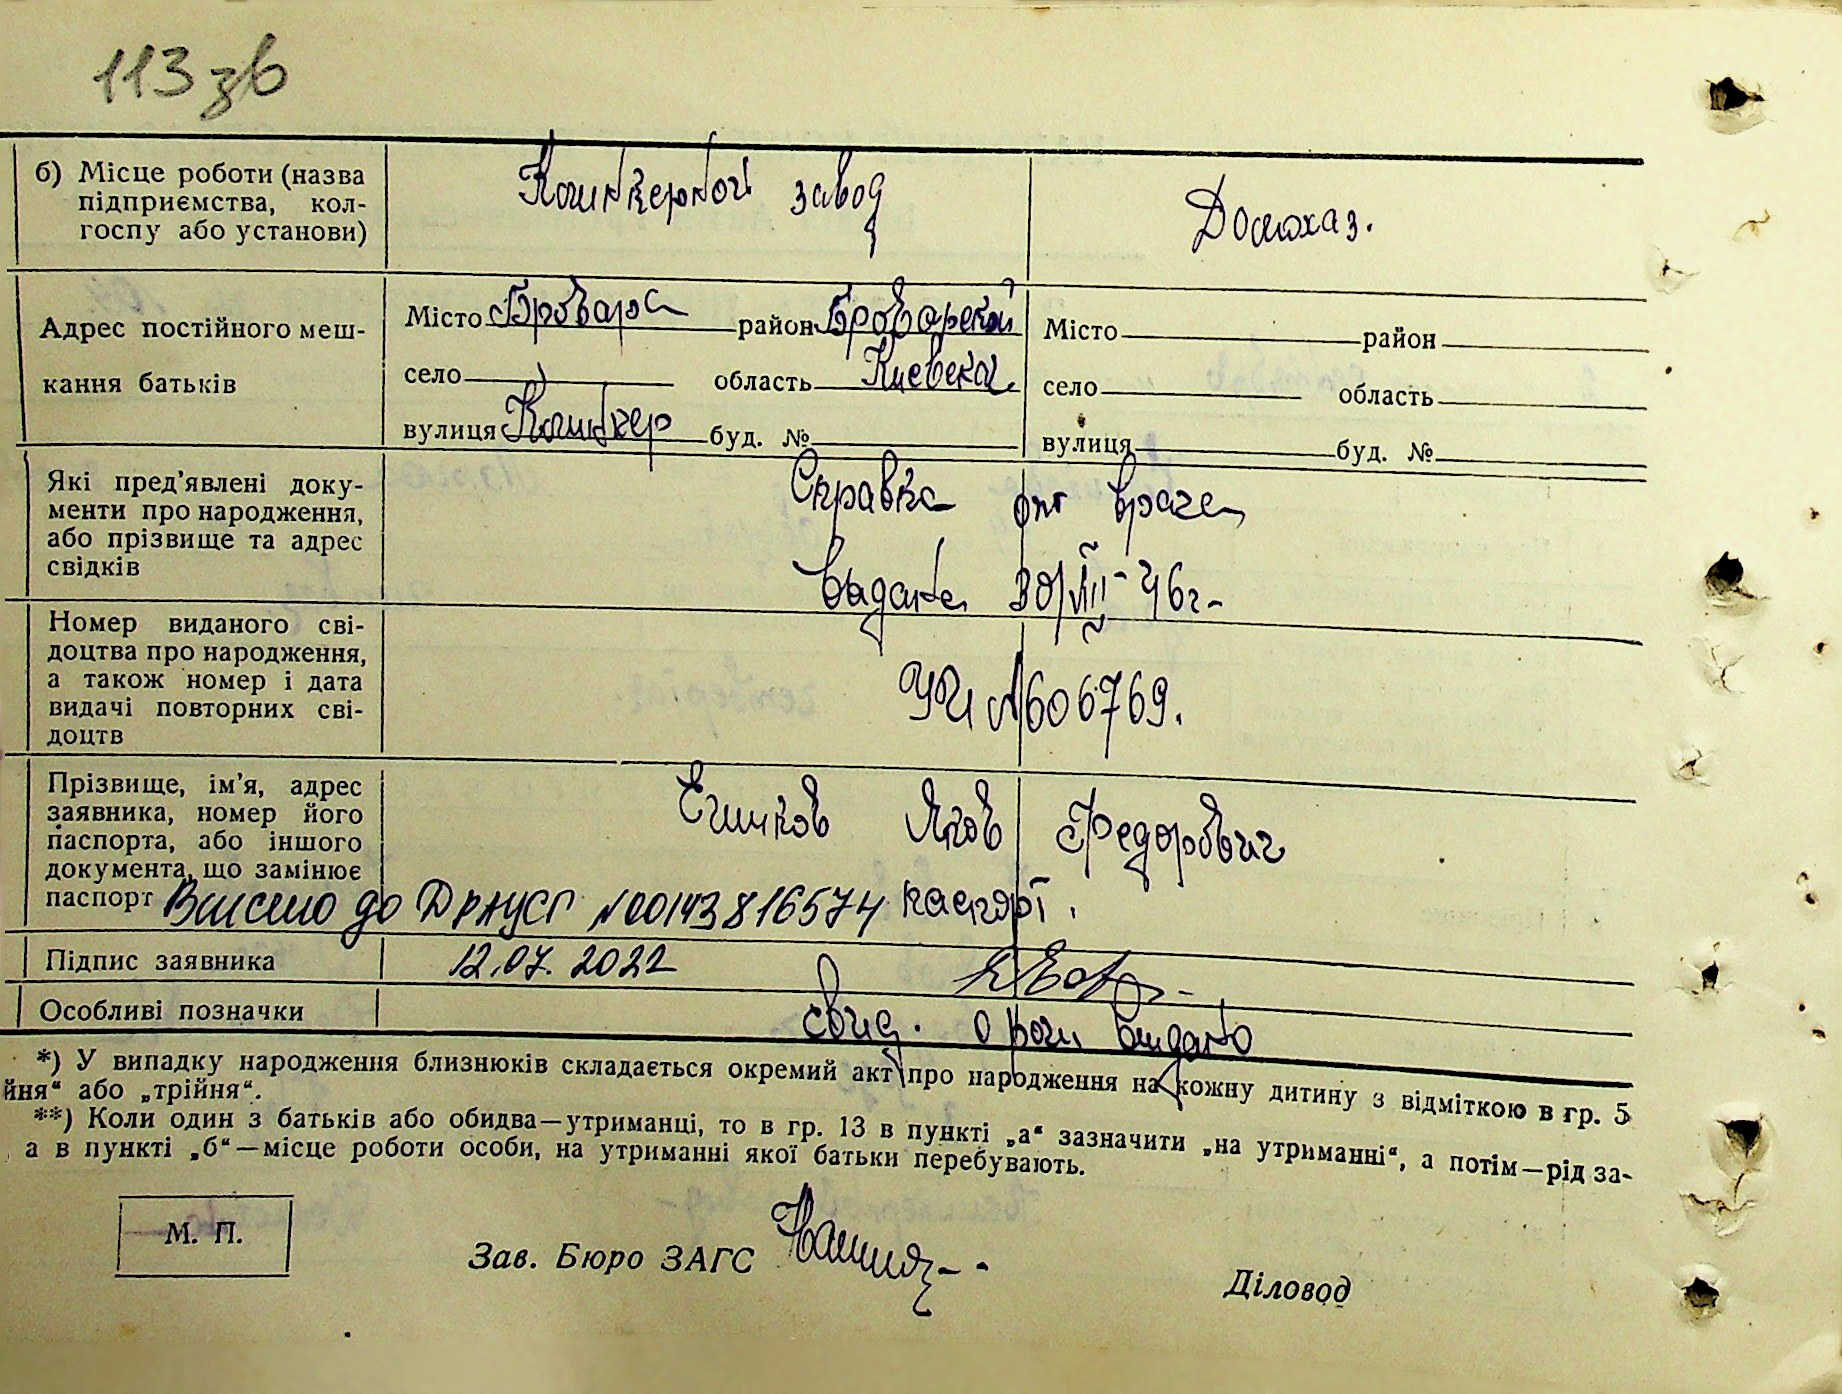 113 зв
б) Місце роботи (назва
підприємства, кол-
госпу або установи)
завод
Домохаз.
Адрес постійного меш-
кання батьків
Місто Бровара район Броварской
село область Киевска
вулиця буд. №
Місто район
село область
вулиця буд. №
Які пред'явлені доку-
менти про народження,
або прізвище та адрес
свідків
Справка от врача
выдана 30/VIII-46г-
Номер виданого сві-
доцтва про народження,
а також номер і дата
видачі повторних сві-
доцтв
№606769.
Прізвище, ім'я, адрес
заявника, номер його
паспорта, або іншого
документа, що замінює
паспорт
Яков Федорович
Внесено до ДРАЦСГ №00143816574 паспорт.
Підпис заявника
12.07.2022
Особливі позначки
свид. о рож выдано
*) У випадку народження близнюків складається окремий акт про народження на кожну дитину з відміткою в гр. 5
йня“ або „трійня“.
**) Коли один з батьків або обидва—утриманці, то в гр. 13 в пункті „а“ зазначити „на утриманні“, а потім—рід за-
а в пункті „б“—місце роботи особи, на утриманні якої батьки перебувають.
М. П.
Зав. Бюро ЗАГС
Діловод